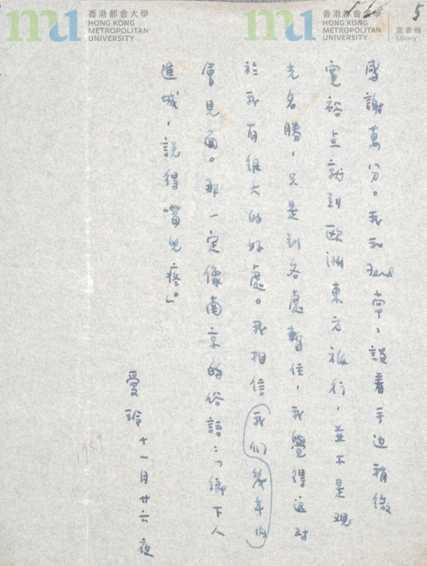 mu
香港都會大學
HONG KONG
METROPOLITAN
UNIVERSITY
mu
香港都會大學
HONG KONG
METROPOLITAN
UNIVERSITY
圖書館
Library
5
感謝萬分。我和Ferd常々談着手边稍微
寬裕点就到歐洲東方旅行，並不是观
光名勝，只是到各處暫住，我覺得這对
於我有很大的好處。我相信我们幾年內
會見面。那一定像南京的俗語：「鄉下人
進城，説得嘴兒疼。」
愛玲 十一月廿六夜